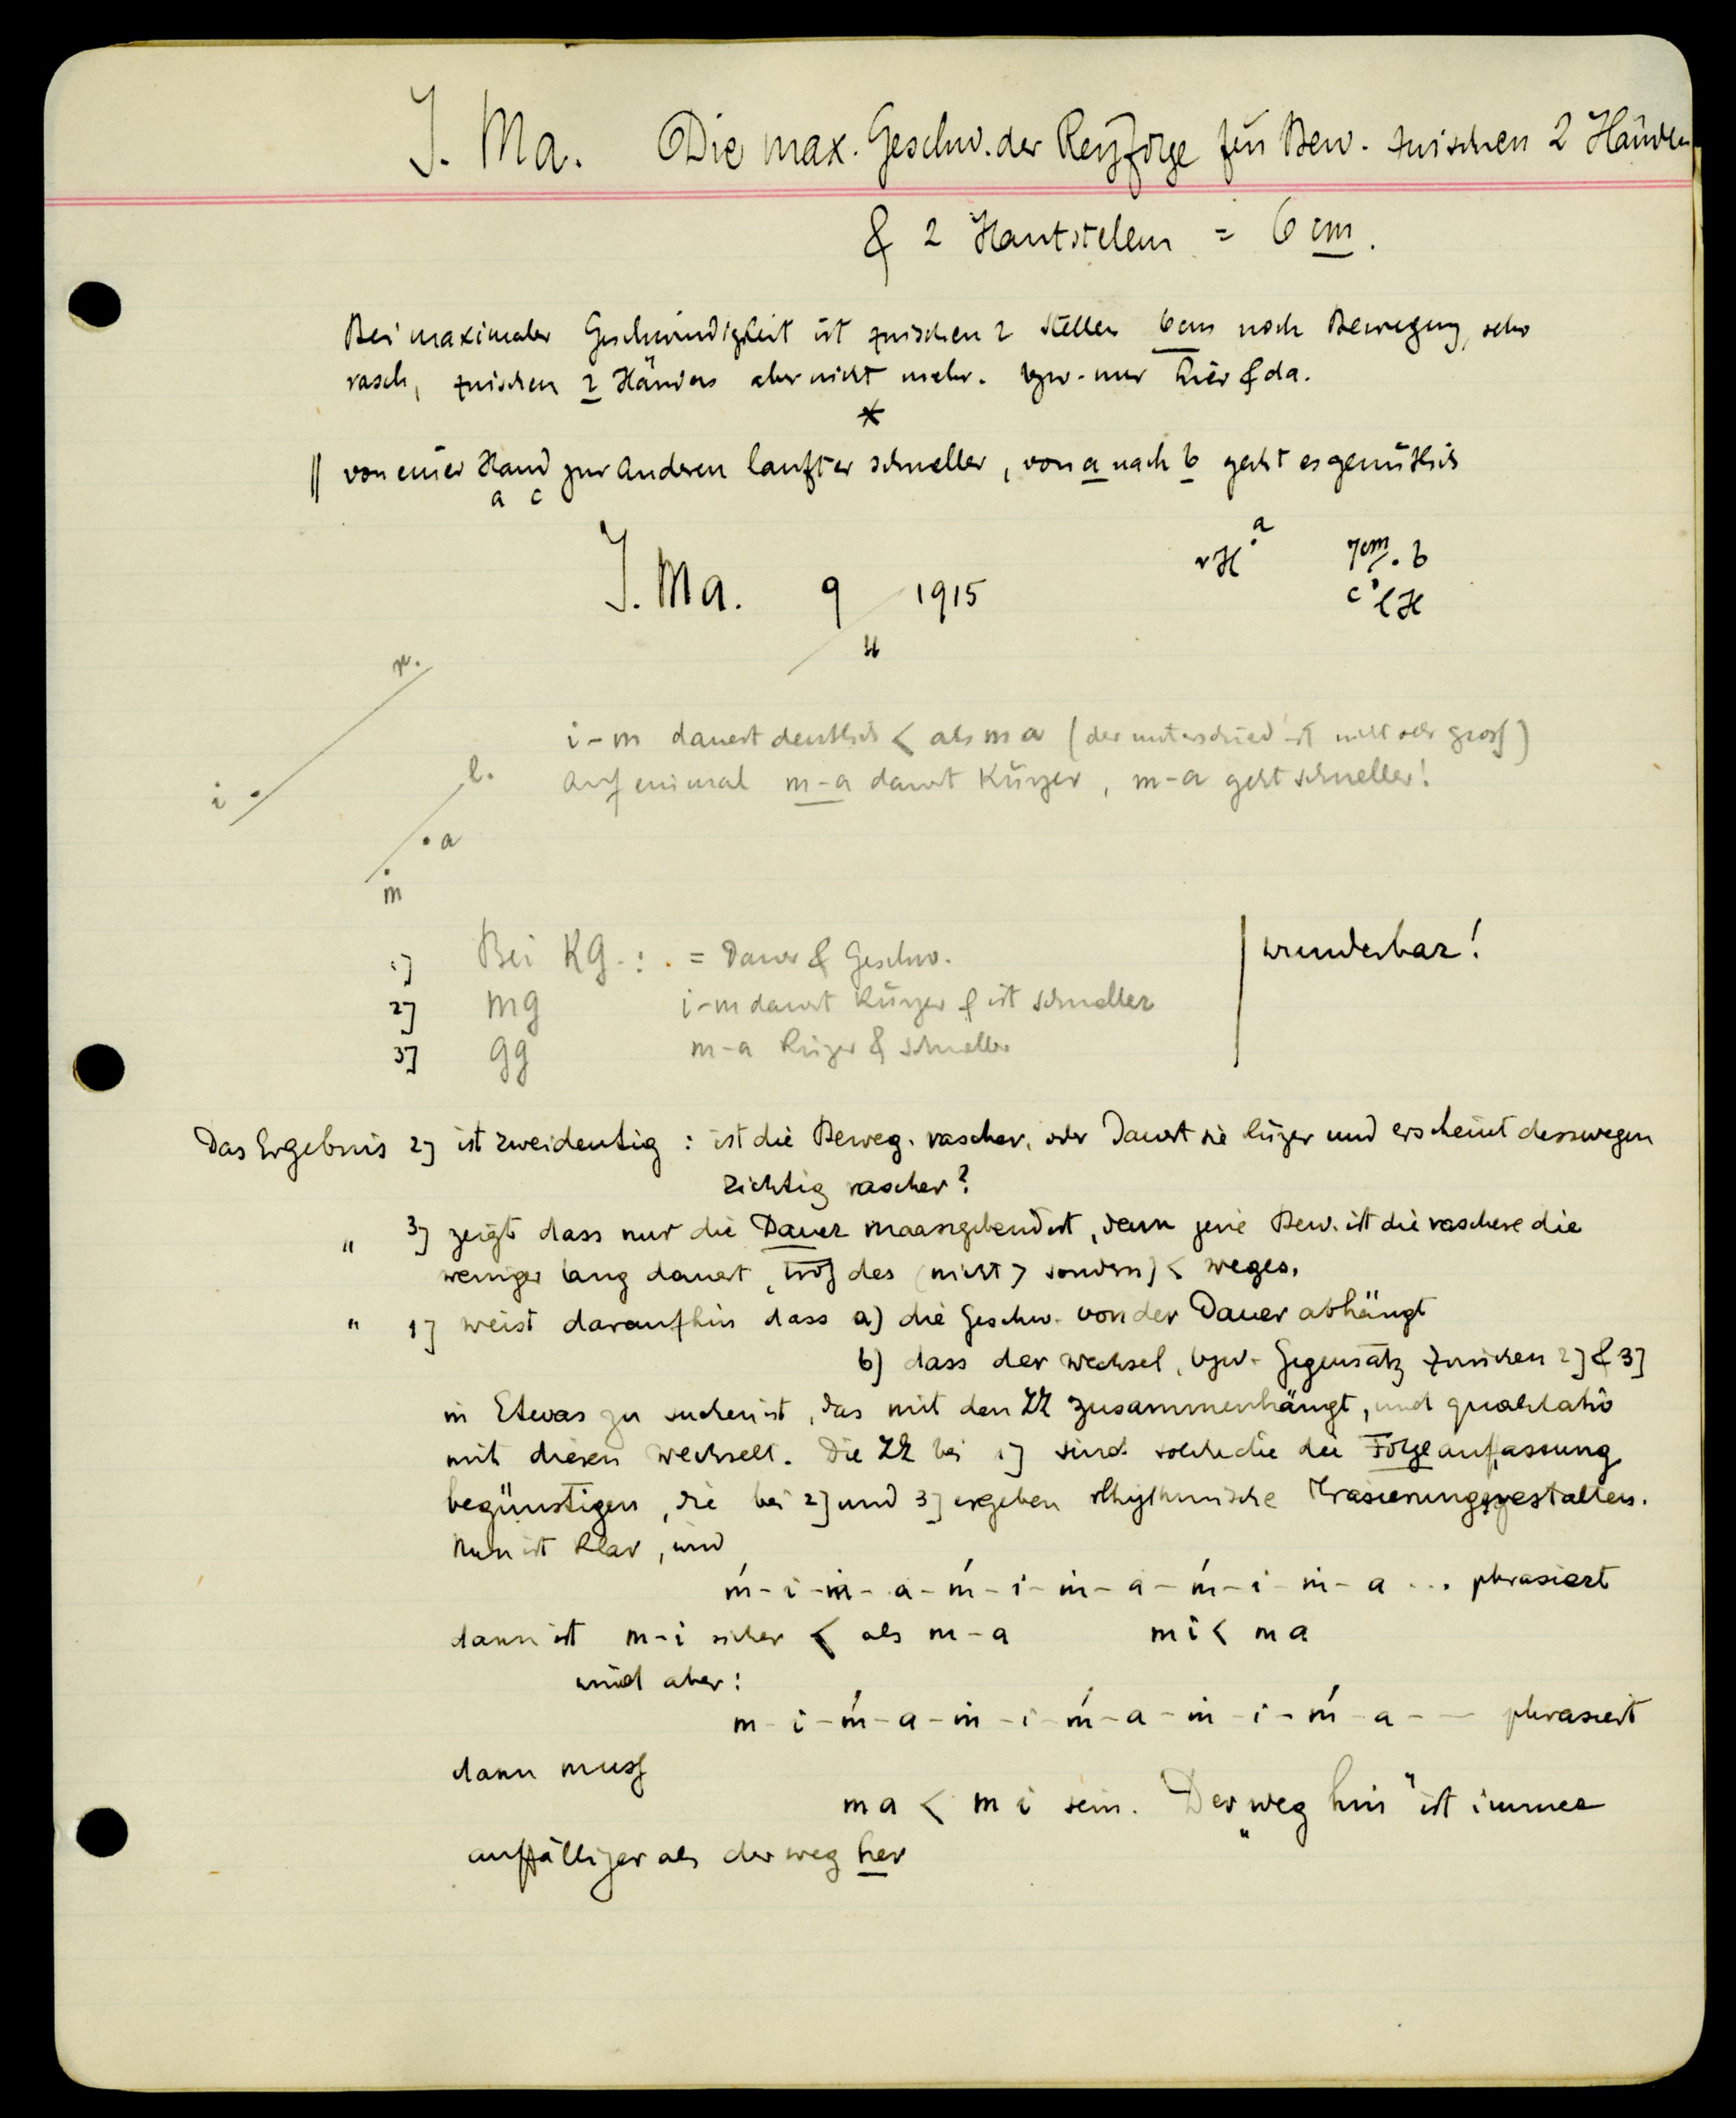 J. Ma. Die max. Geschw. der Reizfolge für Bew. zwischen 2 Händen
& 2 Hautstellen = 6 cm.
Bei maximaler Geschwindigkeit ist zwischen 2 Stellen 6cm noch Bewegung, sehr
rasch, zwischen 2 Händen aber nicht mehr. bzw. nur hier & da.
*
|| von einer Hand zur anderen lauft er schneller, von a nach b geht es gemütlich
a c
J. Ma. 9/4 1915
rH a 7cm. b
c lH
r.
l.
i
a
m
i-m dauert deutlich < als m a (der unterschied ist nicht sehr gross)
Auf einmal m-a dauert kürzer, m-a geht schneller!
1] Bei KG.: . = Dauer & Geschw. wunderbar!
2] mg i-m dauert kürzer & ist schneller
3] gg m-a kürzer & schneller
Das Ergebnis 2] ist zweideutig : ist die Beweg. rascher, oder dauert sie kürzer und erscheint desswegen
richtig rascher?
" 3] zeigt dass nur die Dauer maassgebend ist, denn jene Bew. ist die raschere die
weniger lang dauert, trotz des (nicht > sondern) < weges.
" 1] weist darauf hin dass a) die Geschw. von der Dauer abhängt
b) dass der wechsel, bzw. Gegensatz zwischen 2] & 3]
in Etwas zu suchen ist, das mit den ZZ zusammenhängt, und qualitativ
mit diesen wechselt. Die ZZ bei 1] sind solche die die Folgeauffassung
begünstigen, die bei 2] und 3] ergeben rhythmische Phrasierungsgestalten.
Nun ist klar, wird
ḿ - i - m - a - ḿ - i - m - a - ḿ - i - m - a ... phrasiert
dann ist m-i sicher < als m-a mi < ma
wird aber:
m - i - ḿ - a - m - i - ḿ - a - m - i - ḿ - a - - phrasiert
dann muss
ma < mi sein. Der „weg hin" ist immer
auffälliger als der weg her